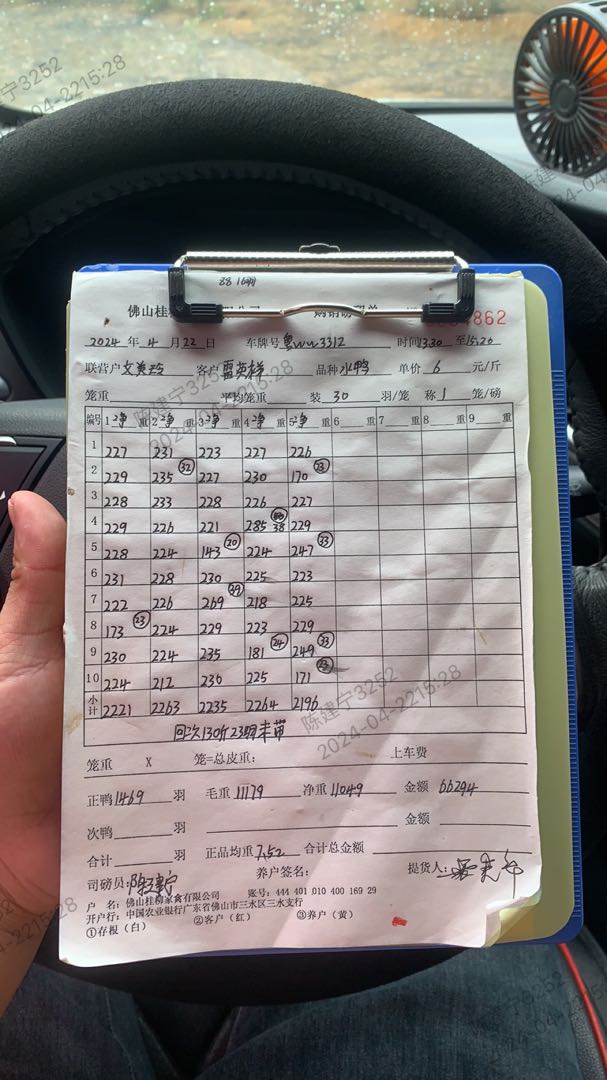 陈建宁3252
2024-04-2215:28
佛山桂
862
2024年4月22日 车牌号粤WW3312 时间13.30至15.20
联营户 客户 品种水鸭 单价6元/斤
笼重: 平均笼重 装30羽/笼 称1笼/磅
编号 1净重 2净重 3净重 4净重 5净重 6重 7重 8重 9重
1 227 231 273 227 226
2 229 235 ㉜ 227 230 170 ㉓
3 228 233 228 226 227
4 229 226 221 285 38 229
5 228 224 143 ⑳ 224 247 ㉝
6 231 228 230 225 223
7 222 226 269 ㊴ 218 225
8 173 ㉓ 224 229 223 229
9 230 224 235 181 ㉔ 249 ㉝
10 224 212 230 225 171 ㉓
小计 2221 2263 2235 2264 2196
陈建宁3252
2024-04-2215:28
笼重 X 笼=总皮重: 上车费
正鸭1469羽 毛重11179 净重11049 金额66294
次鸭 羽 金额
合计 羽 正品均重7.52 合计总金额
司磅员: 养户签名: 提货人:
户 名: 佛山桂柳家禽有限公司 账号: 444 401 010 400 169 29
开户行: 中国农业银行广东省佛山市三水区三水支行
①存根(白) ②客户(红) ③养户(黄)